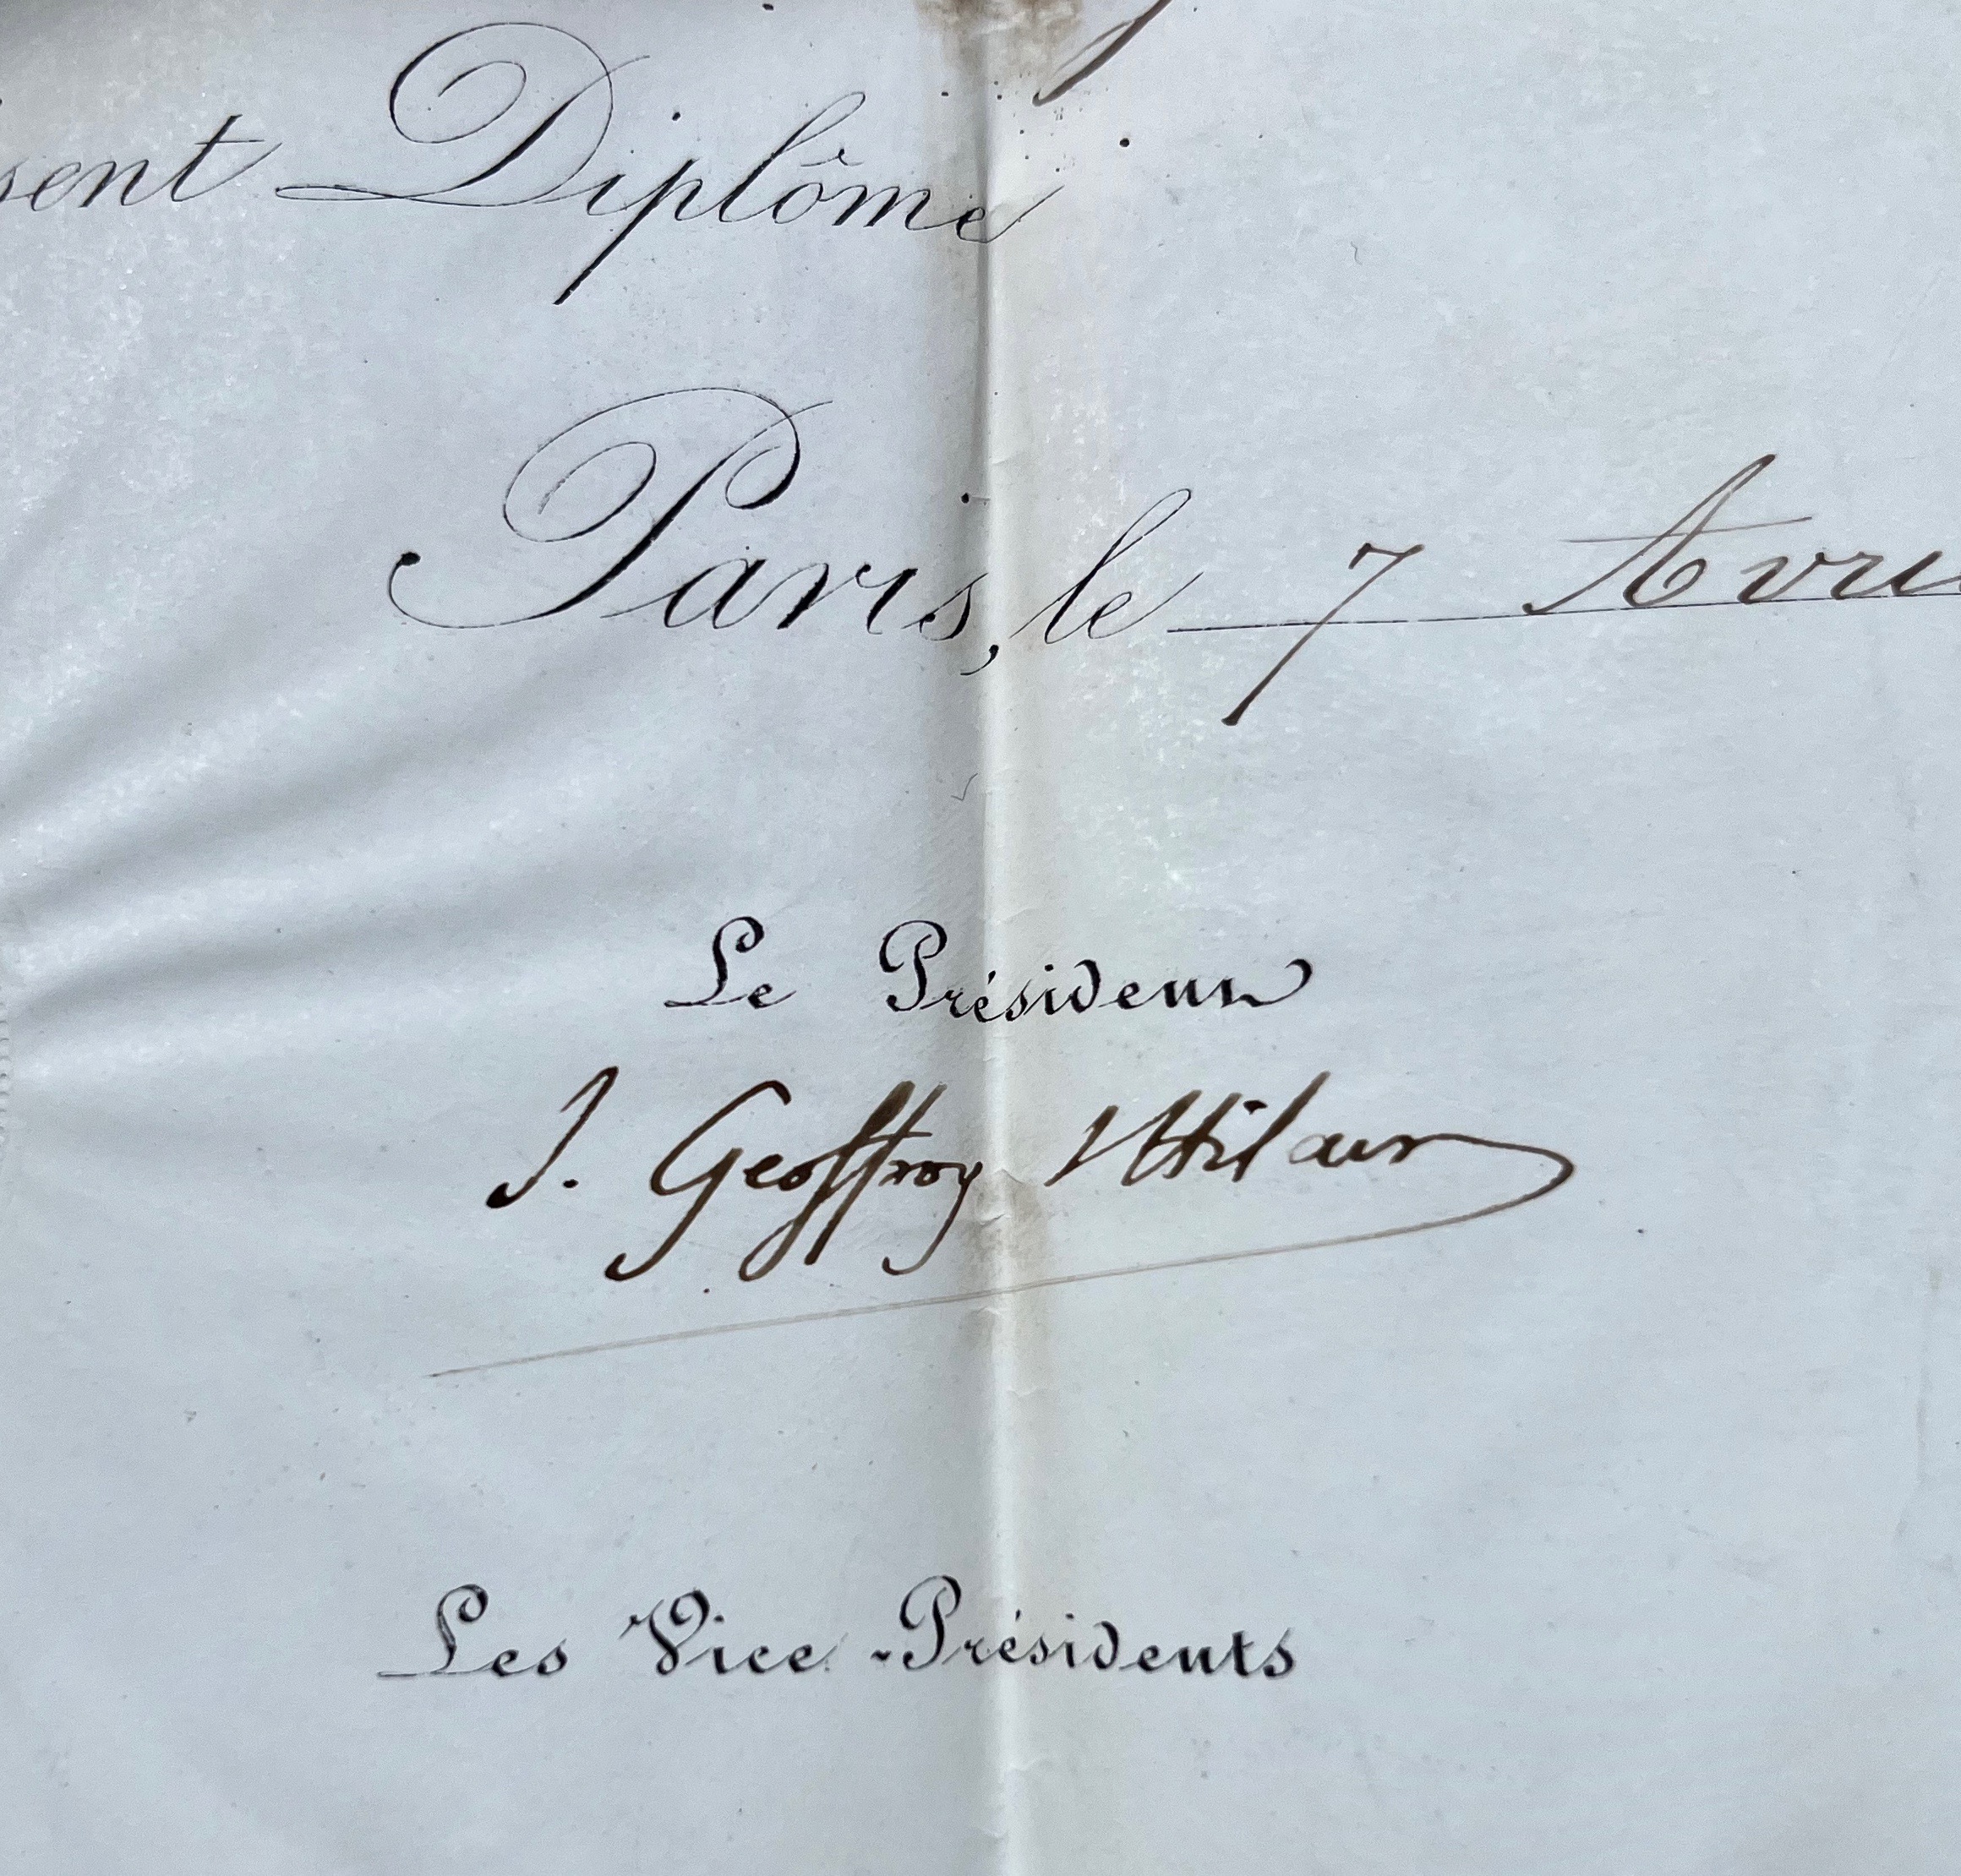 sent Diplôme
Paris, le 7 Avril
Le Président
I. Geoffroy St Hilaire
Les Vice-Présidents